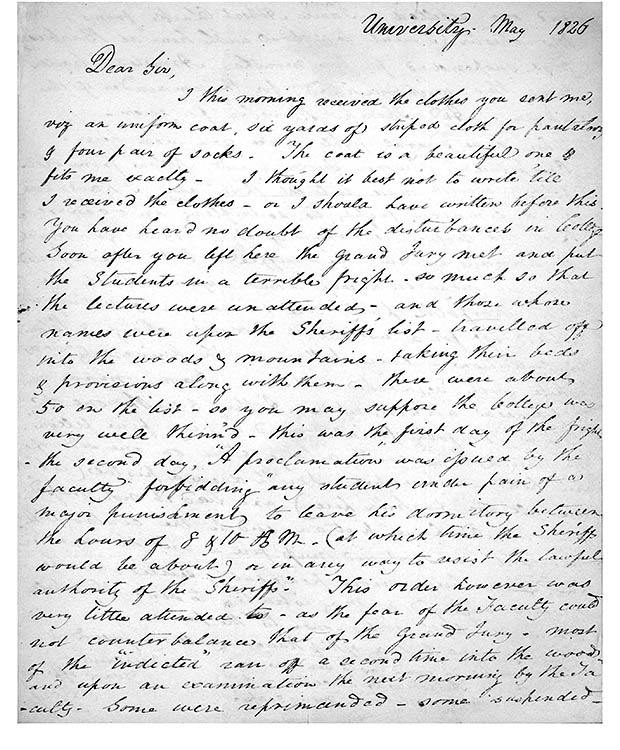 University. May 1826
Dear Sir,
I this morning received the clothes you sent me,
viz an uniform coat, six yards of striped cloth for pantaloons
& four pair of socks - The coat is a beautiful one &
fits me exactly - I thought it best not to write 'till
I received the clothes - or I should have written before this.
You have heard no doubt of the disturbances in College
Soon after you left here the Grand Jury met and put
the Students in a terrible fright - so much so that
the lectures were unattended - and those whose
names were upon the Sheriff's list - travelled off
into the woods & mountains - taking their beds
& provisions along with them - there were about
50 on the list - so you may suppose the College was
very well thinn'd - this was the first day of the fright
- the second day, "A proclamation" was issued by the
faculty forbidding "any student under pain of a
major punishment to leave his dormitory between
the hours of 8 & 10 A M - (at which time the Sheriffs
would be about) or in any way to resist the lawful
authority of the Sheriffs" - This order however was
very little attended to - as the fear of the Faculty could
not counterbalance that of the Grand Jury - most
of the "indicted" ran off a second time into the woods
and upon an examination the next morning by the Fa
-culty - Some were reprimanded - some suspended -